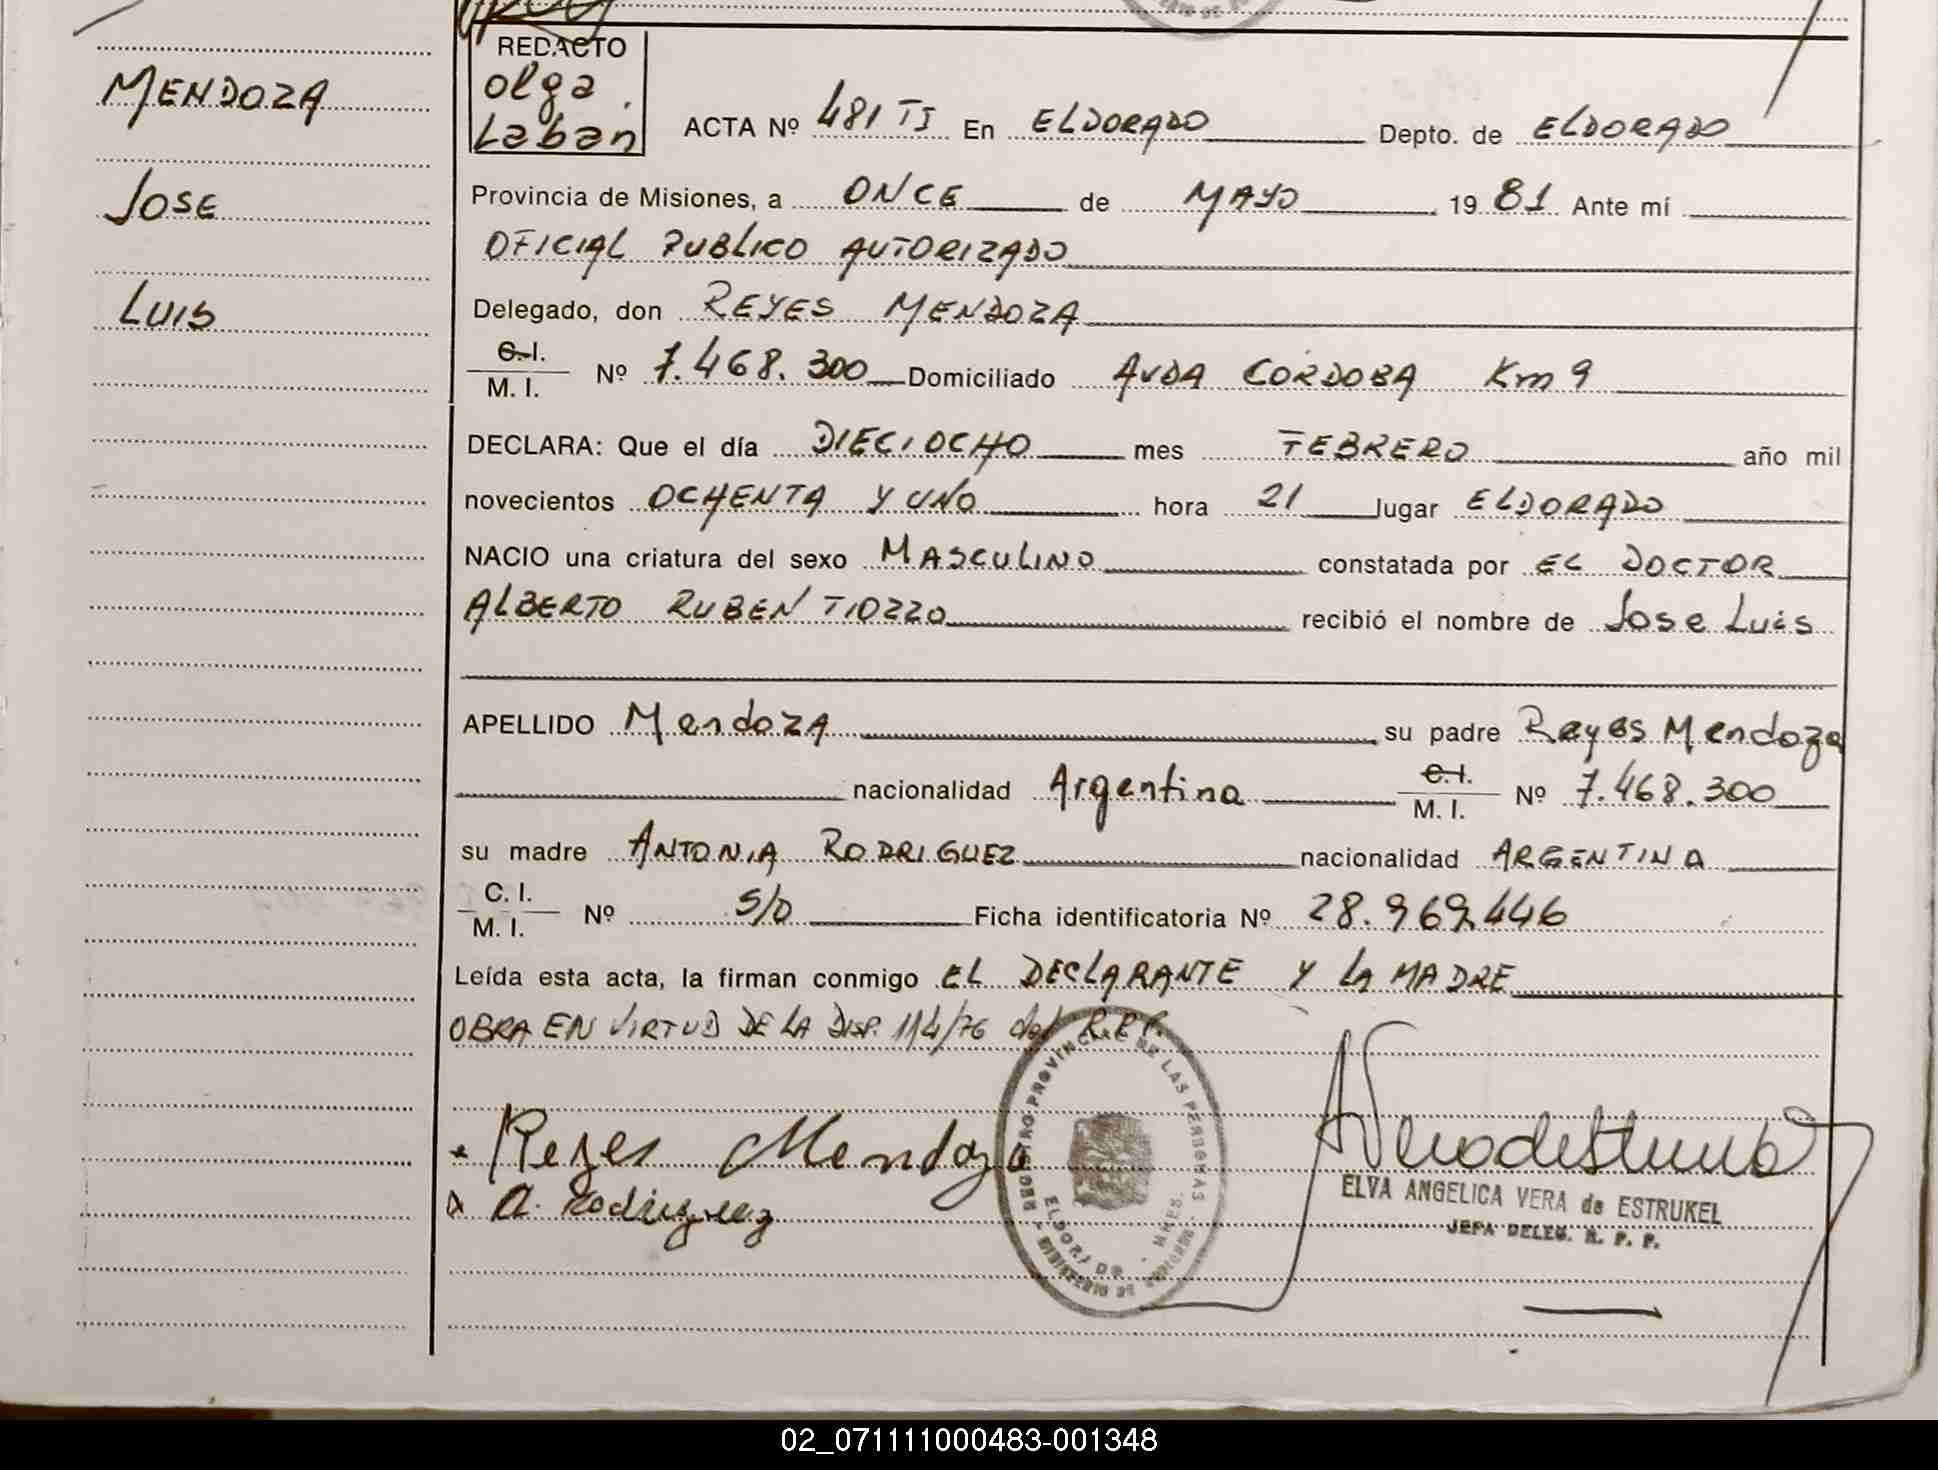 MENDOZA
JOSE
LUIS
REDACTO
Olga
Laban
ACTA Nº 481 TI En ELDORADO Depto. de ELDORADO
Provincia de Misiones, a ONCE de MAYO 19 81 Ante mí
OFICIAL PUBLICO AUTORIZADO
Delegado, don REYES MENDOZA
C.I.
M. I. Nº 7.468.300 Domiciliado AVDA CORDOBA Km 9
DECLARA: Que el día DIECIOCHO mes FEBRERO año mil
novecientos OCHENTA Y UNO hora 21 lugar ELDORADO
NACIO una criatura del sexo MASCULINO constatada por EL DOCTOR
ALBERTO RUBEN TIOZZO recibió el nombre de Jose Luis
APELLIDO Mendoza su padre Reyes Mendoza
nacionalidad Argentina C.I.
M. I. Nº 7.468.300
su madre ANTONIA RODRIGUEZ nacionalidad ARGENTINA
C. I.
M. I. Nº S/D Ficha identificatoria Nº 28.969.446
Leída esta acta, la firman conmigo EL DECLARANTE Y LA MADRE
OBRA EN VIRTUD DE LA DISP. 114/76 del R.P.P.
Reyes Mendoza
A. Rodriguez
REGISTRO PROVINCIAL DE LAS PERSONAS
ELDORADO - MNES.
MINISTERIO DE GOBIERNO
ELVA ANGELICA VERA de ESTRUKEL
JEFA DELEG. R. P. P.
02_071111000483-001348